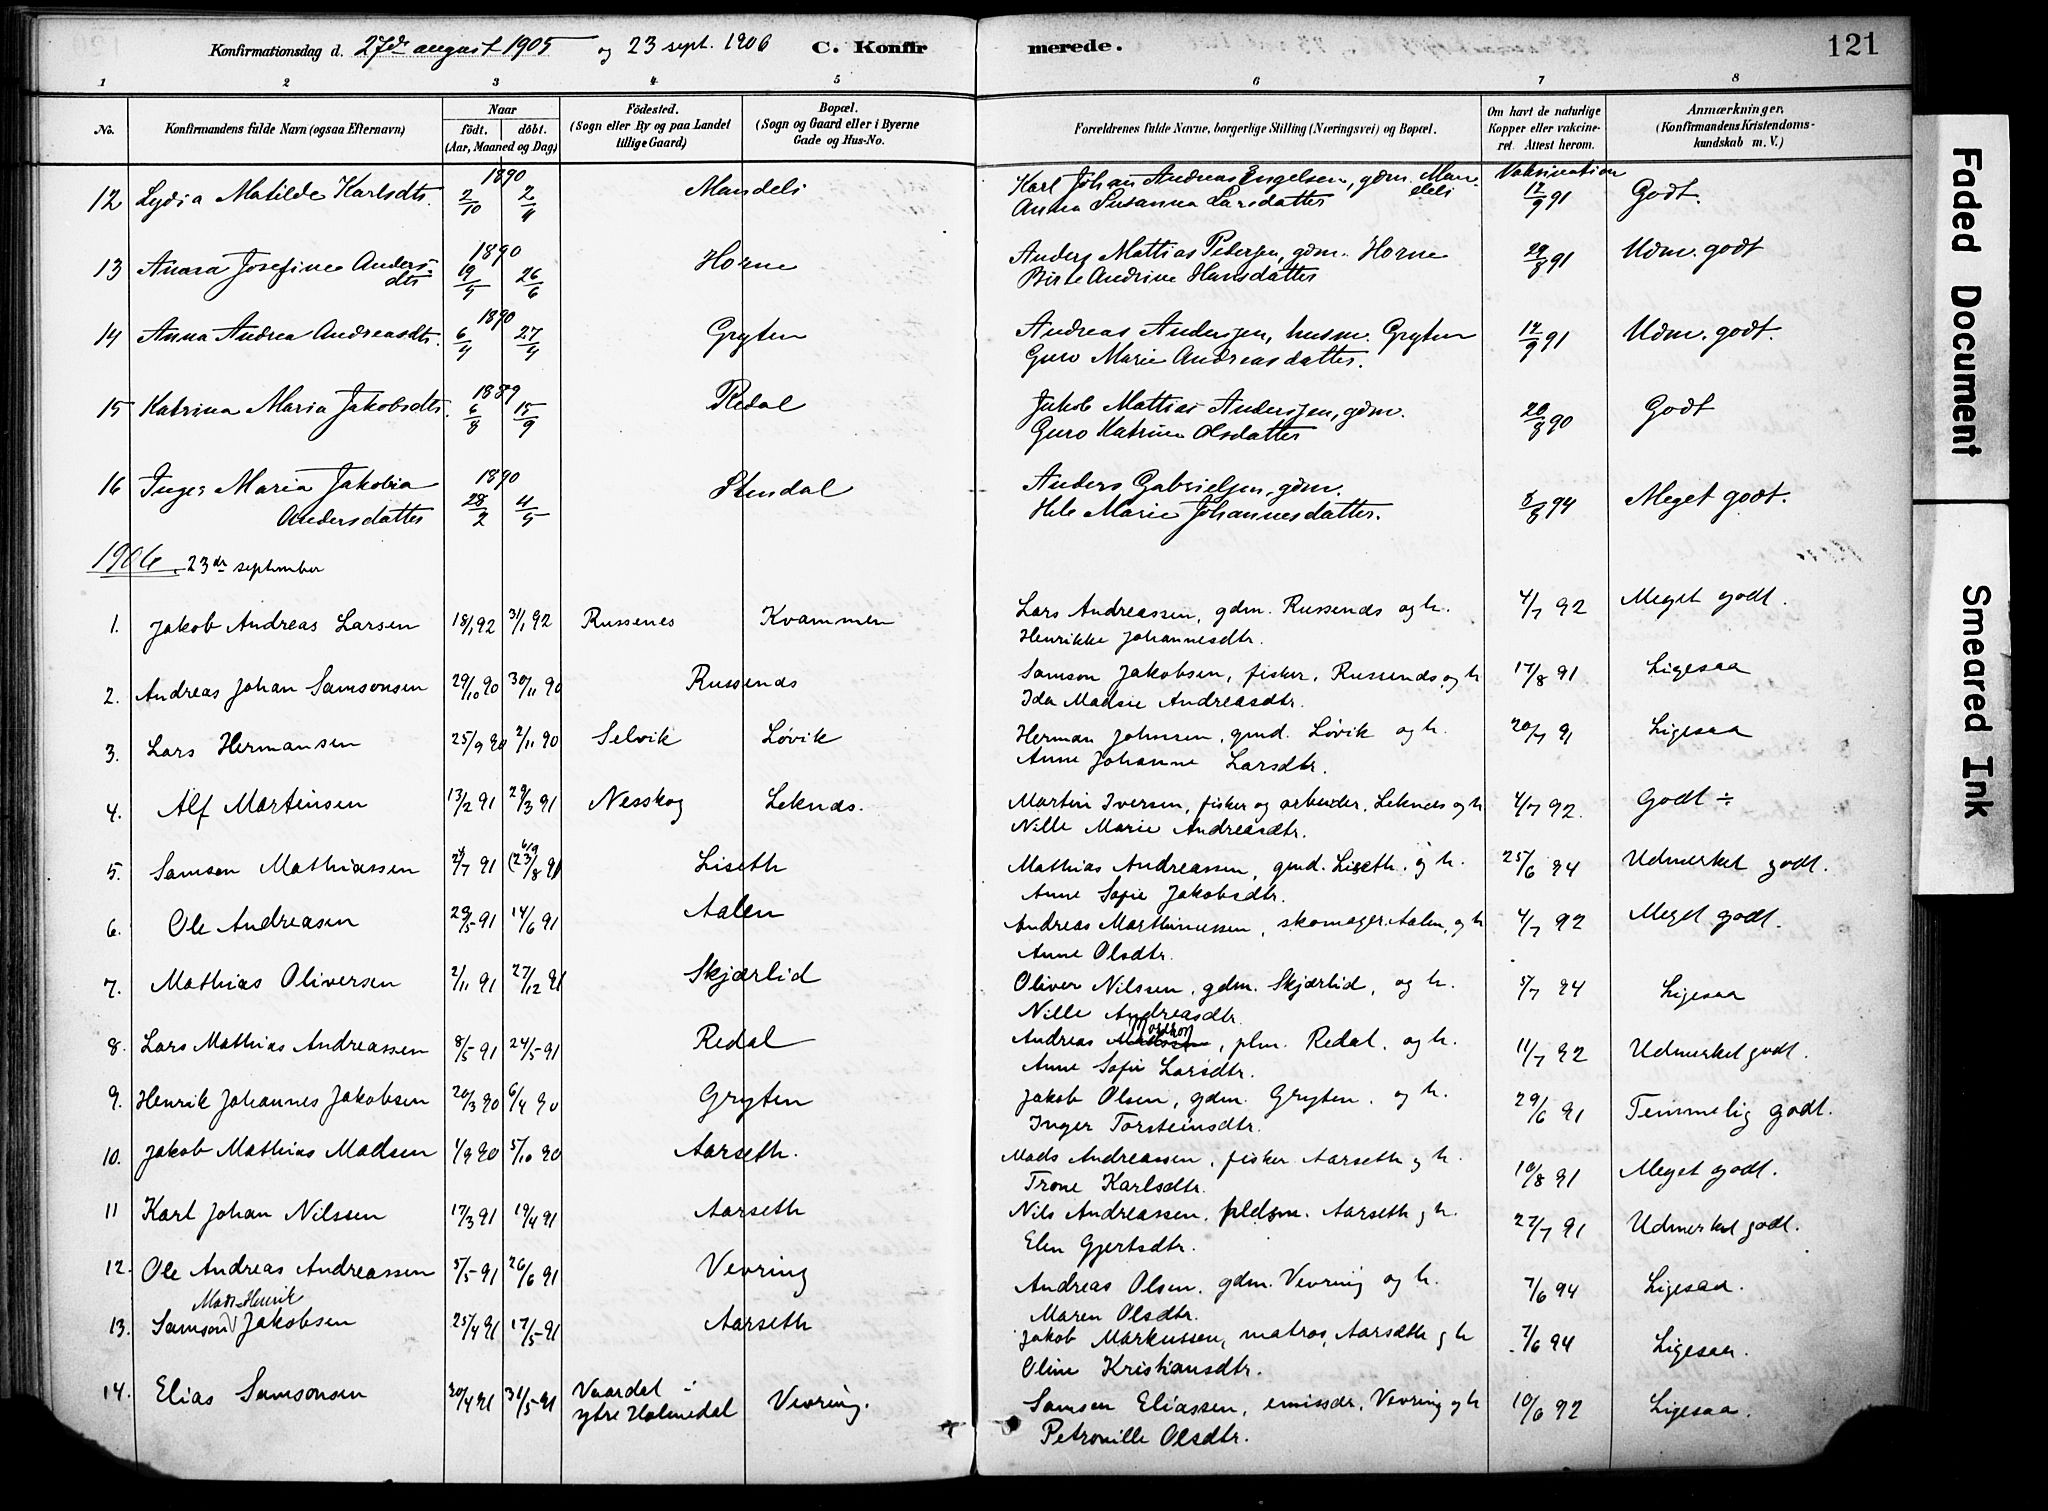 Konfirmationsdag d. 27de august 1905 og 23 sept. 1906 C. Konfirmerede. 121
1 2 3 4 5 6 7 8
No. Konfirmandens fulde Navn (ogsaa Efternavn) Naar födt. döbt. (Aar, Maaned og Dag) Födested. (Sogn eller By og paa Landet tillige Gaard) Bopæl. (Sogn og Gaard eller i Byerne Gade og Hus-No. Forældrenes fulde Navne, borgerlige Stilling (Næringsvei) og Bopæl. Om havt de naturlige Kopper eller vakcineret. Attest herom. Anmærkninger. (Konfirmandens Kristendomskundskab m. V.)
12 Lydia Matilde Karlsdtr. 1890 2/10 2/11 Mandeli Karl Johan Andreas Engelsen, gdm. Mandeli Vaksination 12/9 91 Godt.
Anna Susanna Larsdatter
13 Anna Josefine Andersdtr 1890 19/5 26/6 Horne Anders Mattias Pedersen, gdm. Horne 29/8 91 Udm. godt
Birte Andrine Hansdatter
14 Anna Andrea Andreasdtr. 1890 6/4 27/4 Gryten Andreas Andersen, husm. Gryten 12/9 91 Udm. godt.
Guro Marie Andreasdatter.
15 Katrina Maria Jakobsdtr. 1889 6/8 15/9 Redal Jakob Mattias Andersen, gdm. 20/8 90 Godt
Guro Katrine Olsdatter
16 Inger Maria Jakobia 1890 Stendal Anders Gabrielsen, gdm. 8/8 94 Meget godt.
Andersdatter 28/2 4/5 Hele Marie Johannesdatter.
1906. 23de september
1. Jakob Andreas Larsen 18/1 92 31/1 92 Russenes Kvammen Lars Andreassen, gdm. Russenes og h. 4/7 92 Meget godt.
Henrikke Johannesdtr.
2. Andreas Johan Samsonsen 29/10 90 30/11 90 Russenes Samson Jakobsen, fisker, Russenes og h 17/8 91 Ligesaa
Ida Madsie Andreasdtr.
3. Lars Hermansen 25/9 90 2/11 90 Selvik Løvik Herman Johnsen, gmd. Løvik og h. 20/7 91 Ligesaa
Anne Johanne Larsdtr.
4. Alf Martinsen 13/2 91 29/3 91 Nesskog Leknes. Martin Iversen, fisker og arbeider, Leknes og h 4/7 92. Godt ÷
Nille Marie Andreasdtr.
5. Samson Mathiassen /7 91 (23/8 91 Liseth Mathias Andreassen, gmd. Liseth. og h. 25/6 94 Udmerket godt.
Anne Sofie Jakobsdtr.
6. Ole Andreasen 29/5 91 14/6 91 Aalen Andreas Marthinussen, skomager. Aalen, og h 4/7 92 Meget godt.
Anne Olsdtr.
7. Mathias Oliversen 2/11 91 27/12 91 Skjærlid Oliver Nilssen, gdm. Skjærlid, og h. 5/7 94 Ligesaa
Nille Andreasdtr.
8. Lars Mathias Andreassen 8/5 91 24/5 91 Redal Andreas, plm. Redal. og h. 11/7 92 Udmerket godt.
Anne Sofie Larsdtr.
9. Henrik Johannes Jakobsen 20/3 90 6/4 90 Gryten Jakob Olsen, gdm. Gryten. og h. 29/6 91 Temmelig godt.
Inger Torsteinsdtr.
10. Jakob Mathias Madsen 4/9 90 5/10 90 Aarseth. Mads Andreassen, fisker Aarseth og h. 10/8 91 Meget godt.
Trone Karlsdtr.
11 Karl Johan Nilssen 17/3 91 19/4 91 Aarseth Nils Andreassen, pldsm. Aarseth og h. 27/7 91 Udmerket godt.
Elen Gjertsdtr.
12. Ole Andreas Andreassen 5/5 91 26/6 91 Vevring Andreas Olsen, gdm. Vevring og h. 7/6 94 Ligesaa.
Maren Olsdtr.
Mads Henrik
13. Samson Jakobsen 25/4 91 17/5 91 Aarseth Jakob Markussen, matros, Aarseth og h 7/6 94 Ligesaa.
Oline Kristiansdtr.
14. Elias Samsonsen 20/4 91 31/5 91 Vaardal i ytre Holmedal Vevring. Samson Eliassen, emissær, Vevring og h 10/6 92 Ligesaa.
Petronille Olsdtr.
Faded Document
Smeared Ink